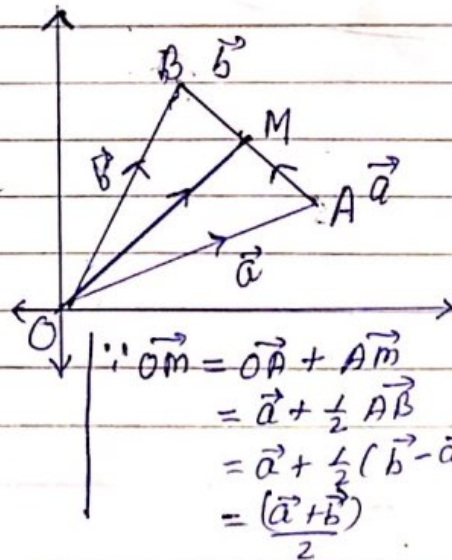 B b⃗
M
b⃗
A a⃗
a⃗
O
∵ OM⃗ = OA⃗ + AM⃗
= a⃗ + 1/2 AB⃗
= a⃗ + 1/2 (b⃗ - a⃗
= (a⃗ + b⃗)/2